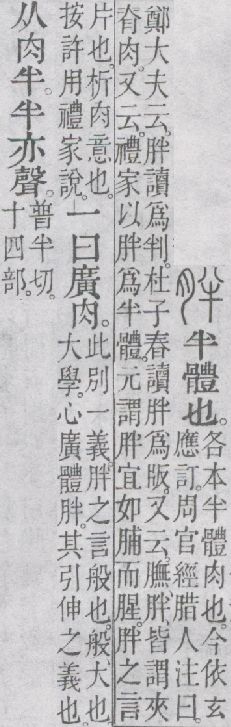 半體也。各本半體肉也。今依玄
應訂。周官經腊人注曰。
鄭大夫云。胖讀爲判。杜子春讀胖爲版。又云。膴胖皆謂夾
脊肉。又云。禮家以胖爲半體。元謂胖宜如脯而腥。胖之言
片也。析肉意也。
按許用禮家說。
一曰廣肉。此別一義。胖之言般也。般大也。
大學。心廣體胖。其引伸之義也。
从肉半。半亦聲。普半切。
十四部。